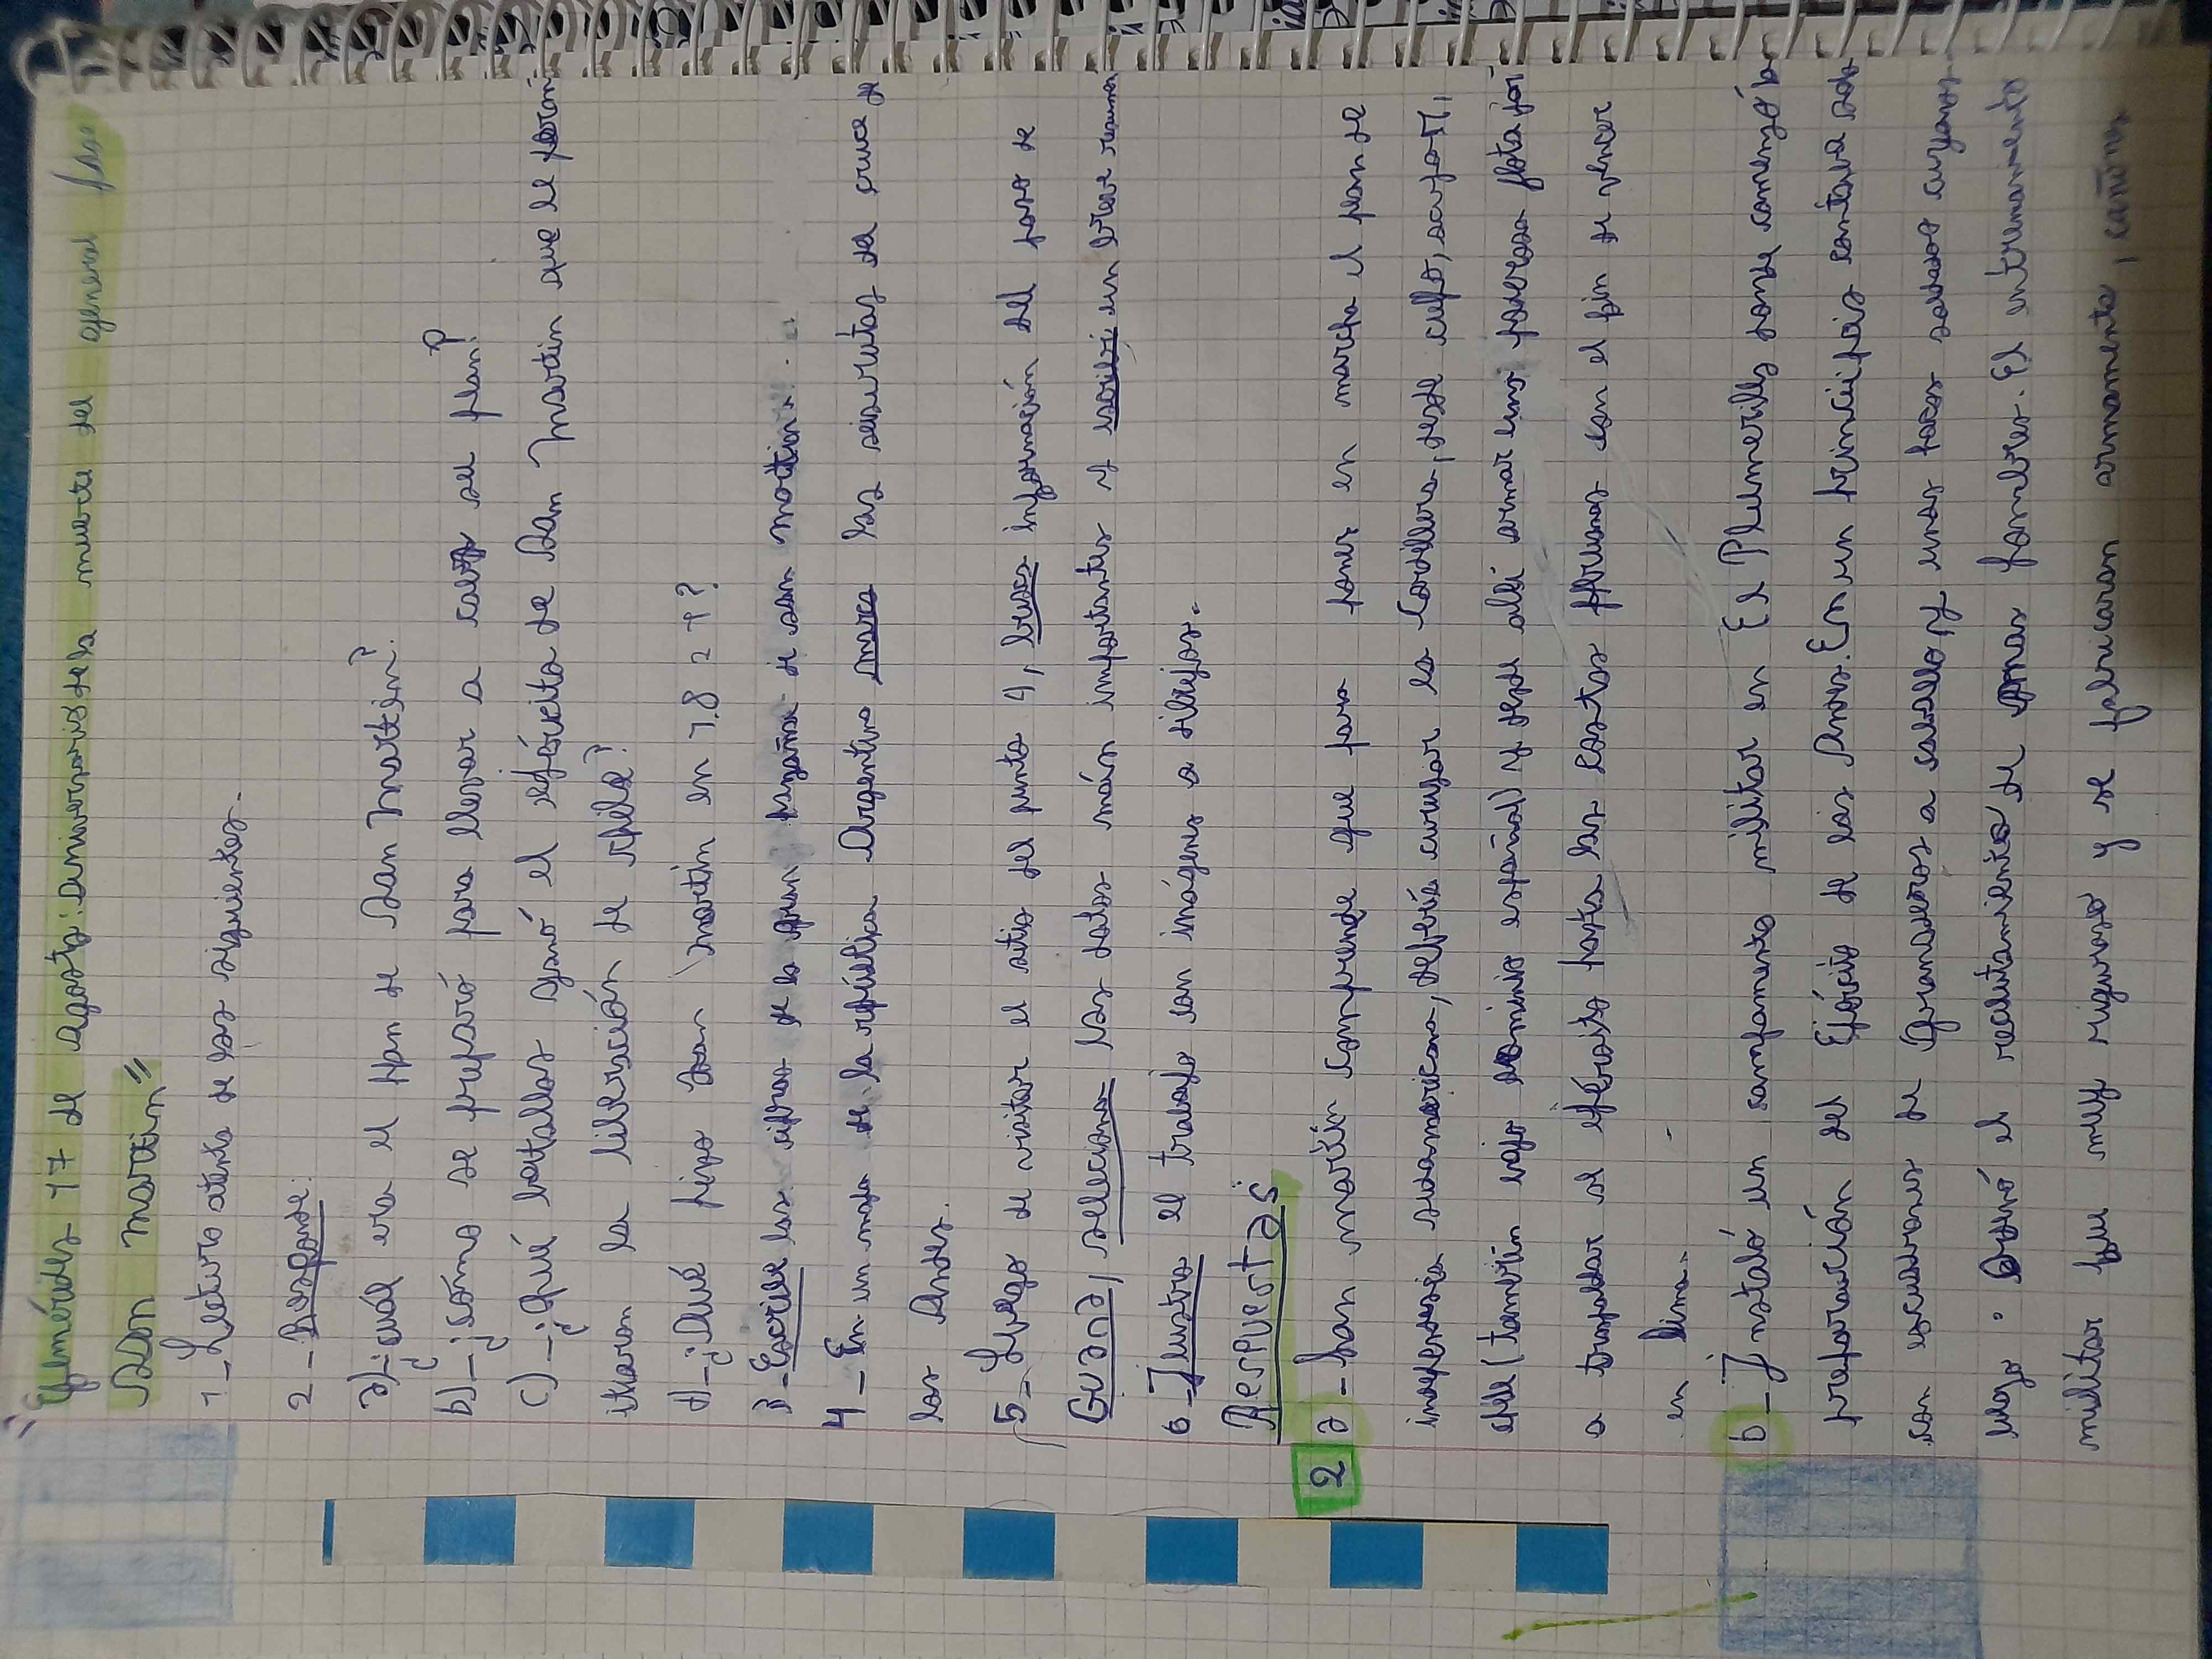 "Efemérides 17 de agosto: aniversario de la muerte del general José
San Martín"
1_Lectura atenta de los siguientes.
2_Responde:
a)_¿cuál era el plan de San Martín?
b)_¿cómo se preparó para llevar a cabo su plan?
c)_¿qué batallas ganó el ejército de San Martín que le permi
itharon la liberación de chile?
d)_¿Qué hizo San Martín en 1.8 2 4?
3_Escribe las cifras de la gran hazaña de san martín.
4_En un mapa de la república Argentina marca las seis rutas del cruce de
los Andes.
5_Luego de visitar el sitio del punto 4, busca información del paso de
Guana, selecciona los datos más importantes y escribí un breve resumen
6_Ilustra el trabajo con imágenes o dibujos.
Respuestas
2 a_San martín comprende que para poner en marcha el plan de
independencia sudamericana, debería cruzar la Cordillera, desde cuyo,
chile (también bajo dominio español) y desde allí armar una poderosa flota
a trasladar al ejército hasta las costas peruanas con el fin de vencer
en lima.
b_Instaló un campamento militar en El Plumerillo donde comenzó la
preparación del Ejército de los Andes. En un principio contaba solo
con escuadrones de Granaderos a caballo, y unos pocos soldados cuyanos.
luego ordenó el reclutamiento de más hombres. El entrenamiento
militar fue muy riguroso y se fabricaron armamento, cañones